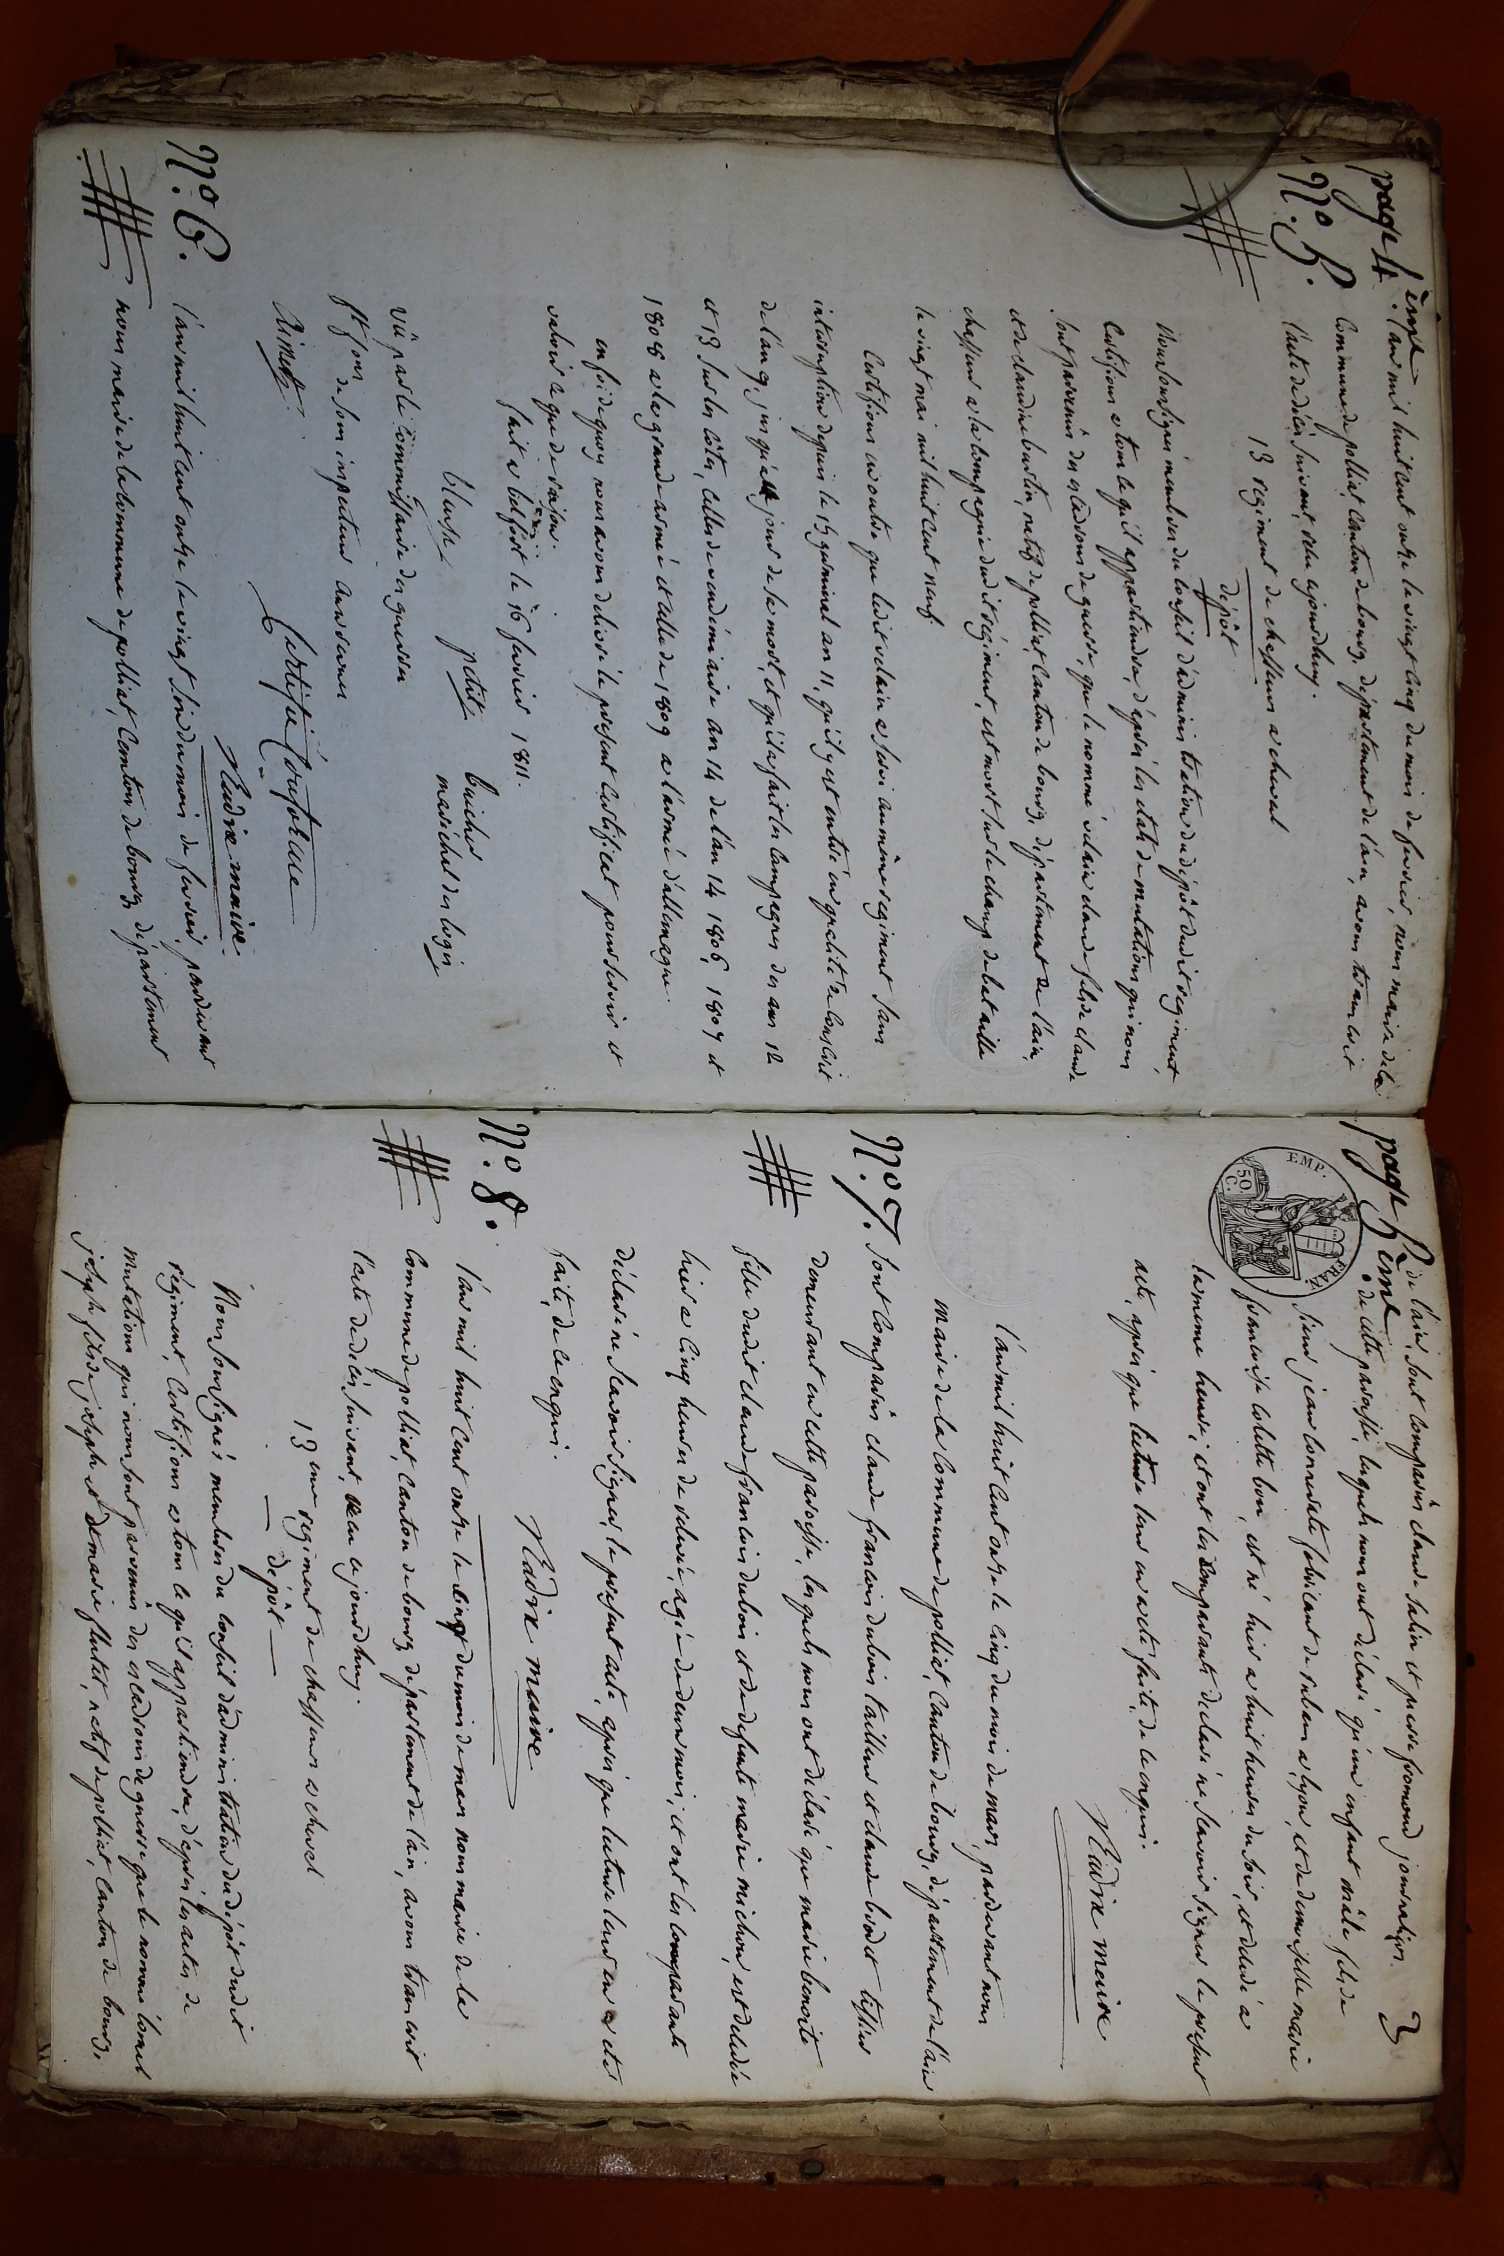 page 4ème
N.º 5.
l'an mil huit cent onze le vingt cinq du mois de fevrier, nous maire de la
commune de polliat, canton de bourg, département de l'ain, avons transcrit
l'acte de décès suivant, recu cejourdhuy.
13 regiment de chasseurs a cheval
dépôt
Nous soussignés membres du conseil d'administration du dépôt dudit regiment,
certifions a tous ce qu'il appartiendra, d'après les etats de mutations qui nous
sont parvenus des escadrons de guerre, que le nommé velain claude fils de claude
et de claudine burtin, natif de polliat, canton de bourg, département de l'ain,
chasseur a la compagnie dudit régiment, est mort sur le champ de bataille
le vingt mai mil huit cent neuf
certifions en outre que ledit velain a servi au même regiment sans
interruption depuis le 19 germinal an 11, qu'il y est entré en qualité de conscrit
de l'an 9, jusqu'au jour de sa mort, et qu'il a fait les campagnes des ans 12
et 13 sur les côtes, celles de vendémiaire an 14 de l'an 14 1806, 1807 et
1808 a la grande armée et celle de 1809 a l'armée d'allemagne.
en foi de quoy nous avons delivré le présent certificat pour servir et
valoir ce que de raison.
fait a belfort le 16 fevrier 1811.
petit
marichal des logis
Vû par le commissaire des guerres
de sous inspecteur aux revues
Certifié Conforme
Nadire maire
N.º 6.
l'an mil huit cent onze le vingt six du mois de fevrier, pardevant
nous maire de la commune de polliat, canton de bourg, département
page 5ème
3
EMP. FRAN.
50 C.
de l'ain, sont comparûs claude salin et pierre fromond journaliers
de cette paroisse, lesquels nous ont déclaré qu'un enfant mâle fils de
sieur jean bonnet fabricant de rubans a lyon, et de demoiselle marie
francoise colette bon, est né hier a huit heures du soir, et delivré a
la meme heure; et ont les comparants déclaré ne scavoir signer le présent
acte, après que lecture leur en a eté faite, de ce enquis.
Nadire maire
N.º 7.
l'an mil huit cent onze le cinq du mois de mars, pardevant nous
maire de la commune de polliat, canton de bourg, département de l'ain
sont comparûs claude francois dubois tailleur et claude tissier
demeurant en cette paroisse, lesquels nous ont déclaré que marie benoite
fille dudit claude francois dubois et de defunte marie michon, est décédée
hier a cinq heures de relevée, agée de deux mois; et ont les comparants
déclaré ne scavoir signer le présent acte, après que lecture leur en a eté
faite, de ce enquis.
Nadire maire
N.º 8.
l'an mil huit cent onze le vingt du mois de mars nous maire de la
commune de polliat, canton de bourg, département de l'ain, avons transcrit
l'acte de décès suivant, recu cejourdhuy.
13eme regiment de chasseurs a cheval
dépôt
Nous soussignés membres du conseil d'administration du dépôt dudit
régiment, certifions a tous ce qu'il appartiendra, d'après les actes de
mutations qui nous sont parvenus des escadrons de guerre que le nommé
joseph fils de joseph et de marie flutet, natif de polliat, canton de bourg,